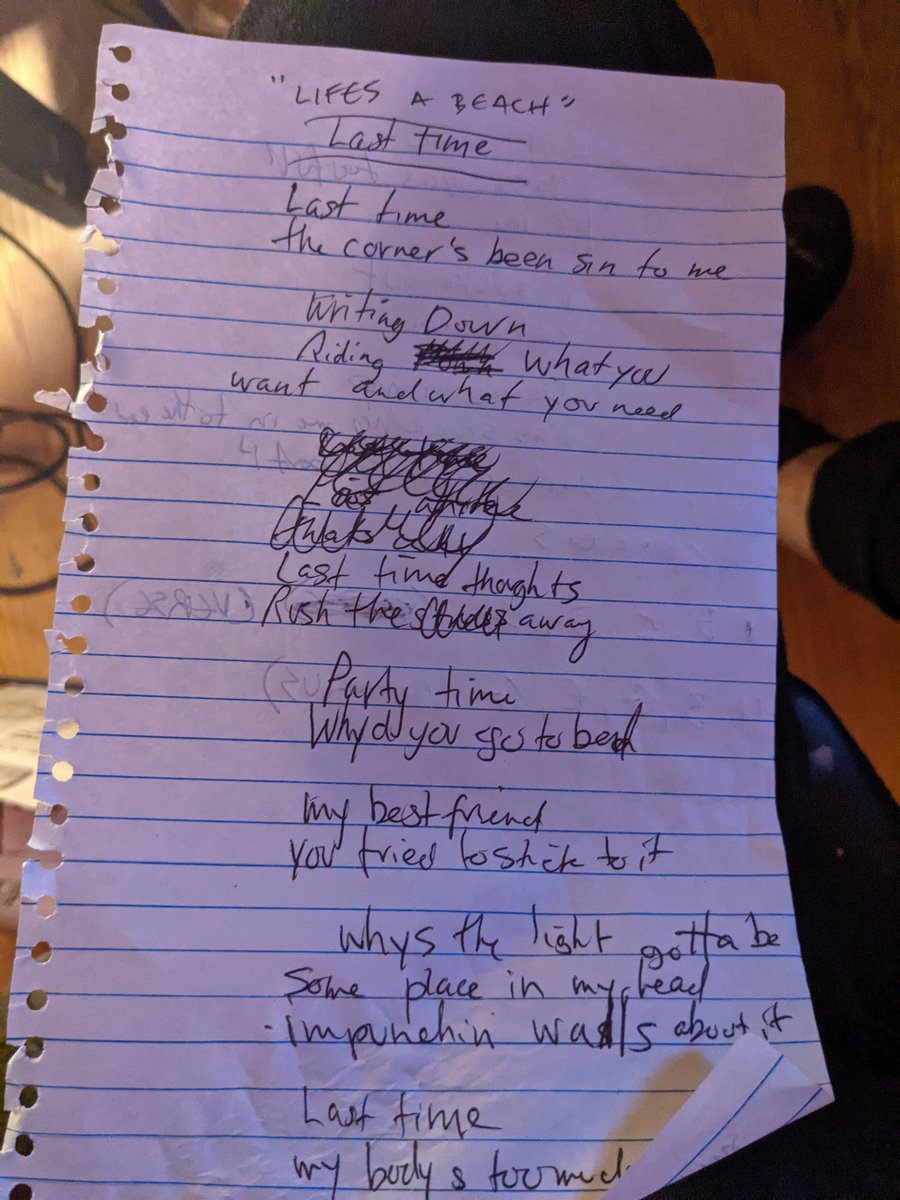 "LIFES A BEACH"
Last time
Last time
the corner's been sin to me
Writing Down
Riding what you
want and what you need
Last time thoghts
Rush the away
Party time
Why do you go to bed
my best friend
you tried to stick to it
whys the light gotta be
some place in my head
impunchin walls about it
Last time
my body s too much
(VERSE)